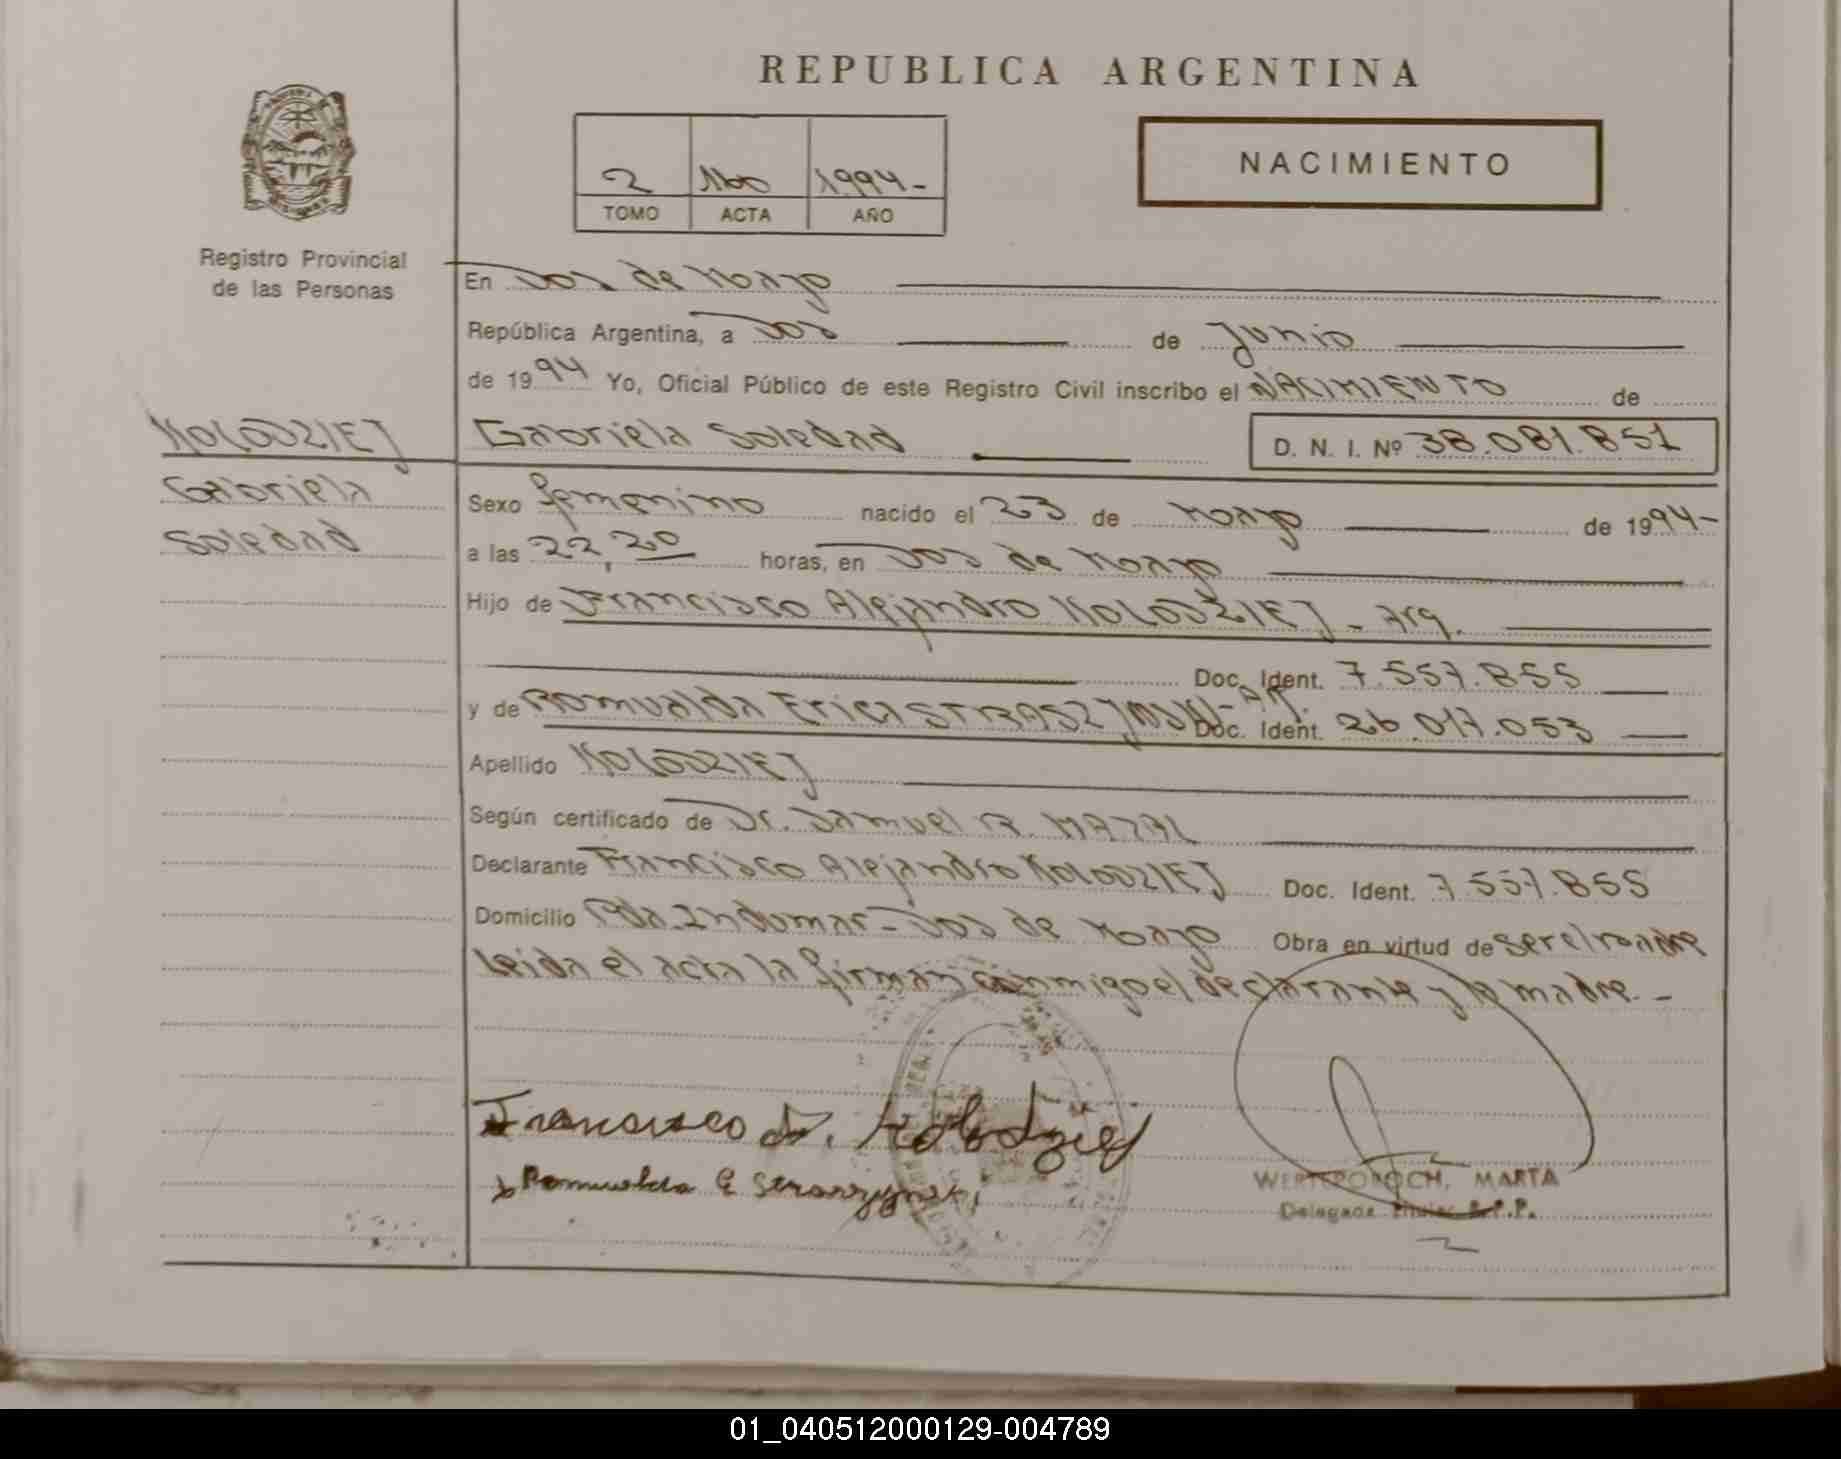 REPUBLICA ARGENTINA
NACIMIENTO
2 1160 1994-
TOMO ACTA AÑO
Registro Provincial
de las Personas
En Dos de Mayo
República Argentina, a Dos de Junio
de 1994 Yo, Oficial Público de este Registro Civil inscribo el NACIMIENTO de
KOLODZIEJ
Gabriela Soledad
D. N. I. Nº 38.081.851
Gabriela
Soledad
Sexo femenino nacido el 23 de Mayo de 1994-
a las 22,20 horas, en Dos de Mayo
Hijo de Francisco Alejandro KOLODZIEJ - Arg.
Doc. Ident. 7.557.855
y de Romualda Erica - Arg. Doc. Ident. 26.017.053
Apellido KOLODZIEJ
Según certificado de Dr. Samuel R. MAZAL
Declarante Francisco Alejandro KOLODZIEJ Doc. Ident. 7.557.855
Domicilio Pda. Indumar - Dos de Mayo Obra en virtud de ser el
leida el acta la firman conmigo el declarante y la madre. -
Francisco A. Kolodziej
Romualda E
WERTEPOROCH, MARTA
Delegada Titular R.P.P.
01_040512000129-004789